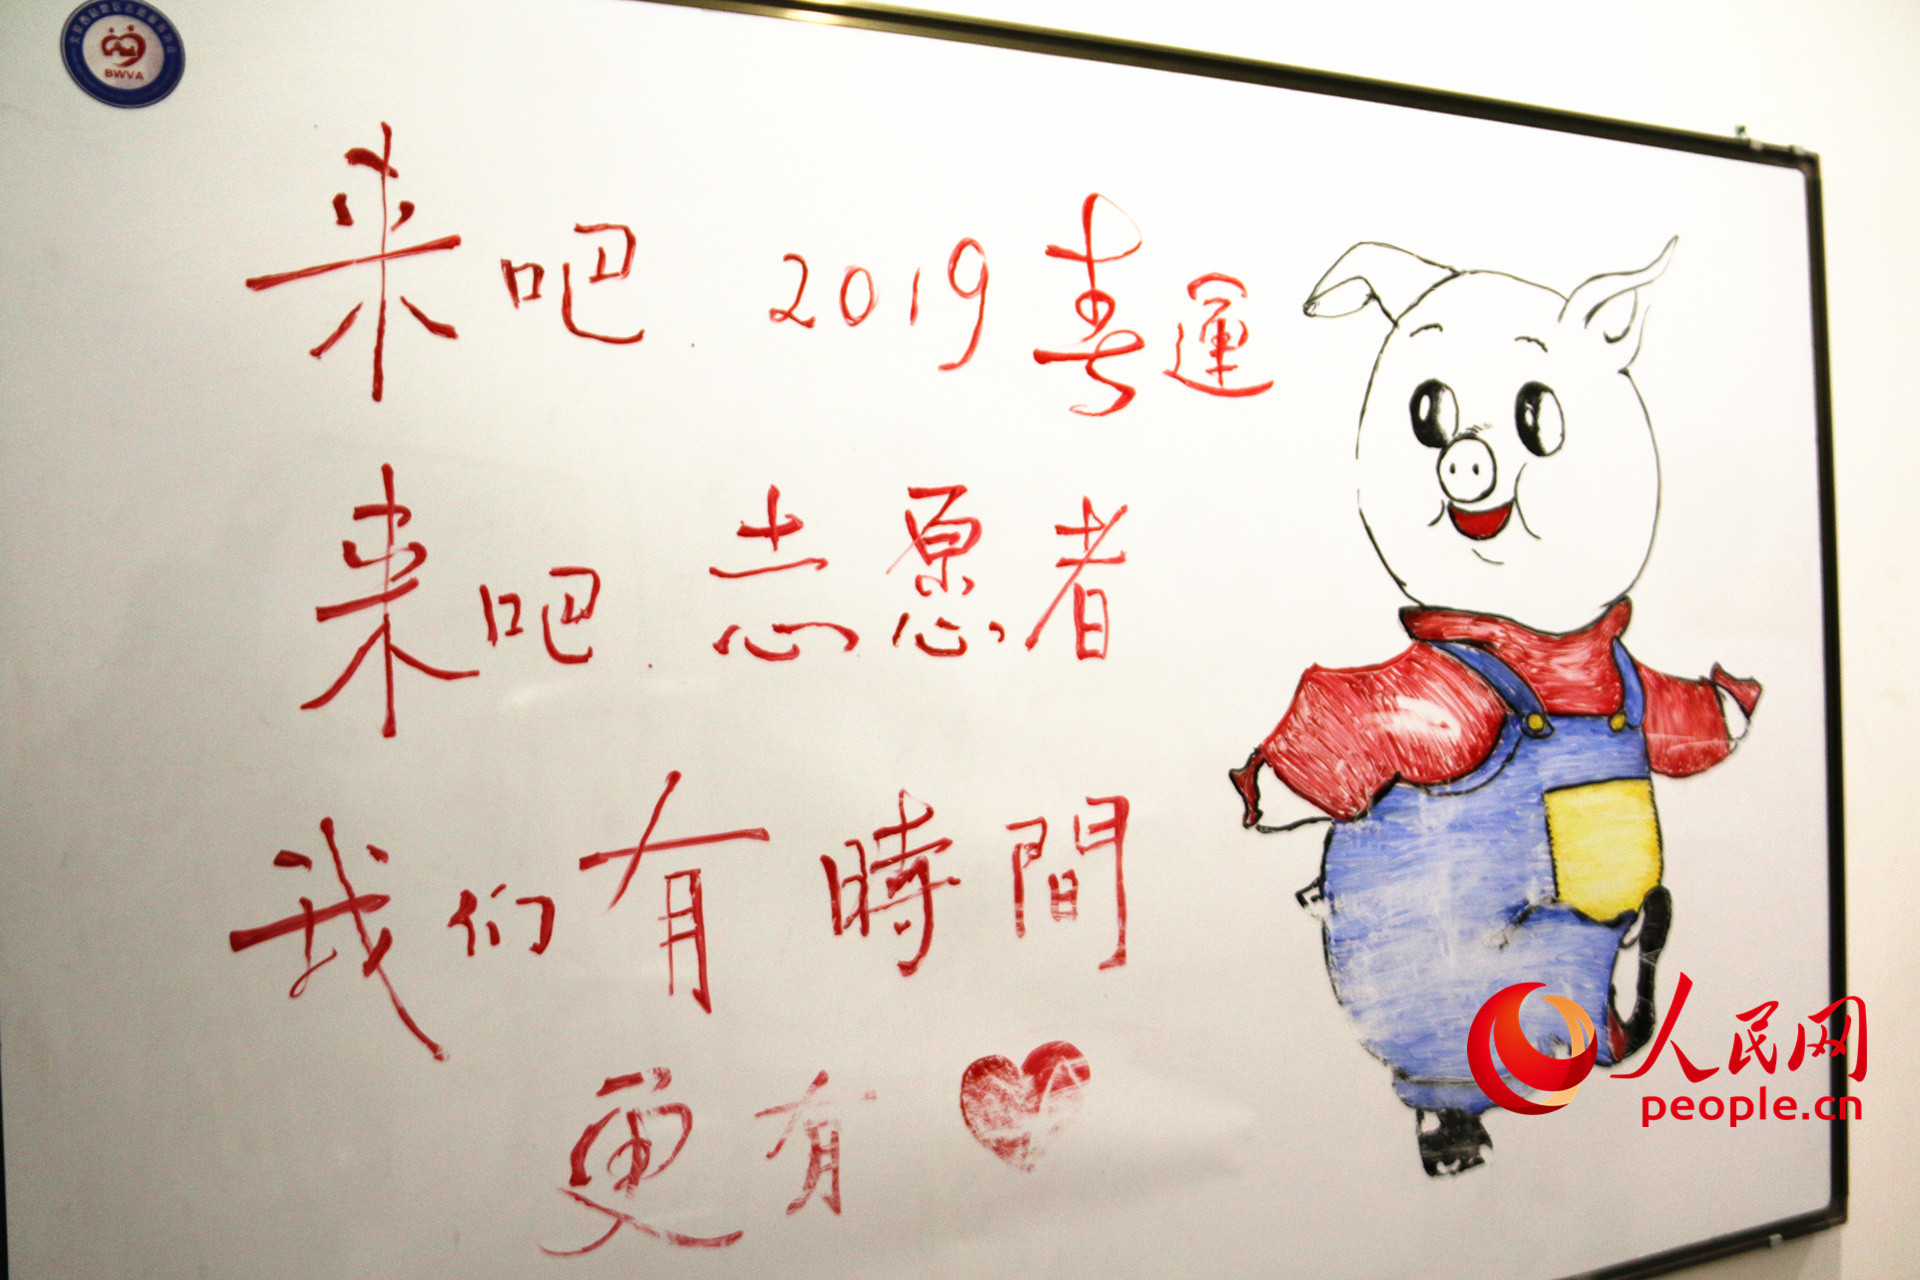 BWVA
来吧 2019 春運
来吧 志愿者
我们有時間
更有
人民网
people.cn